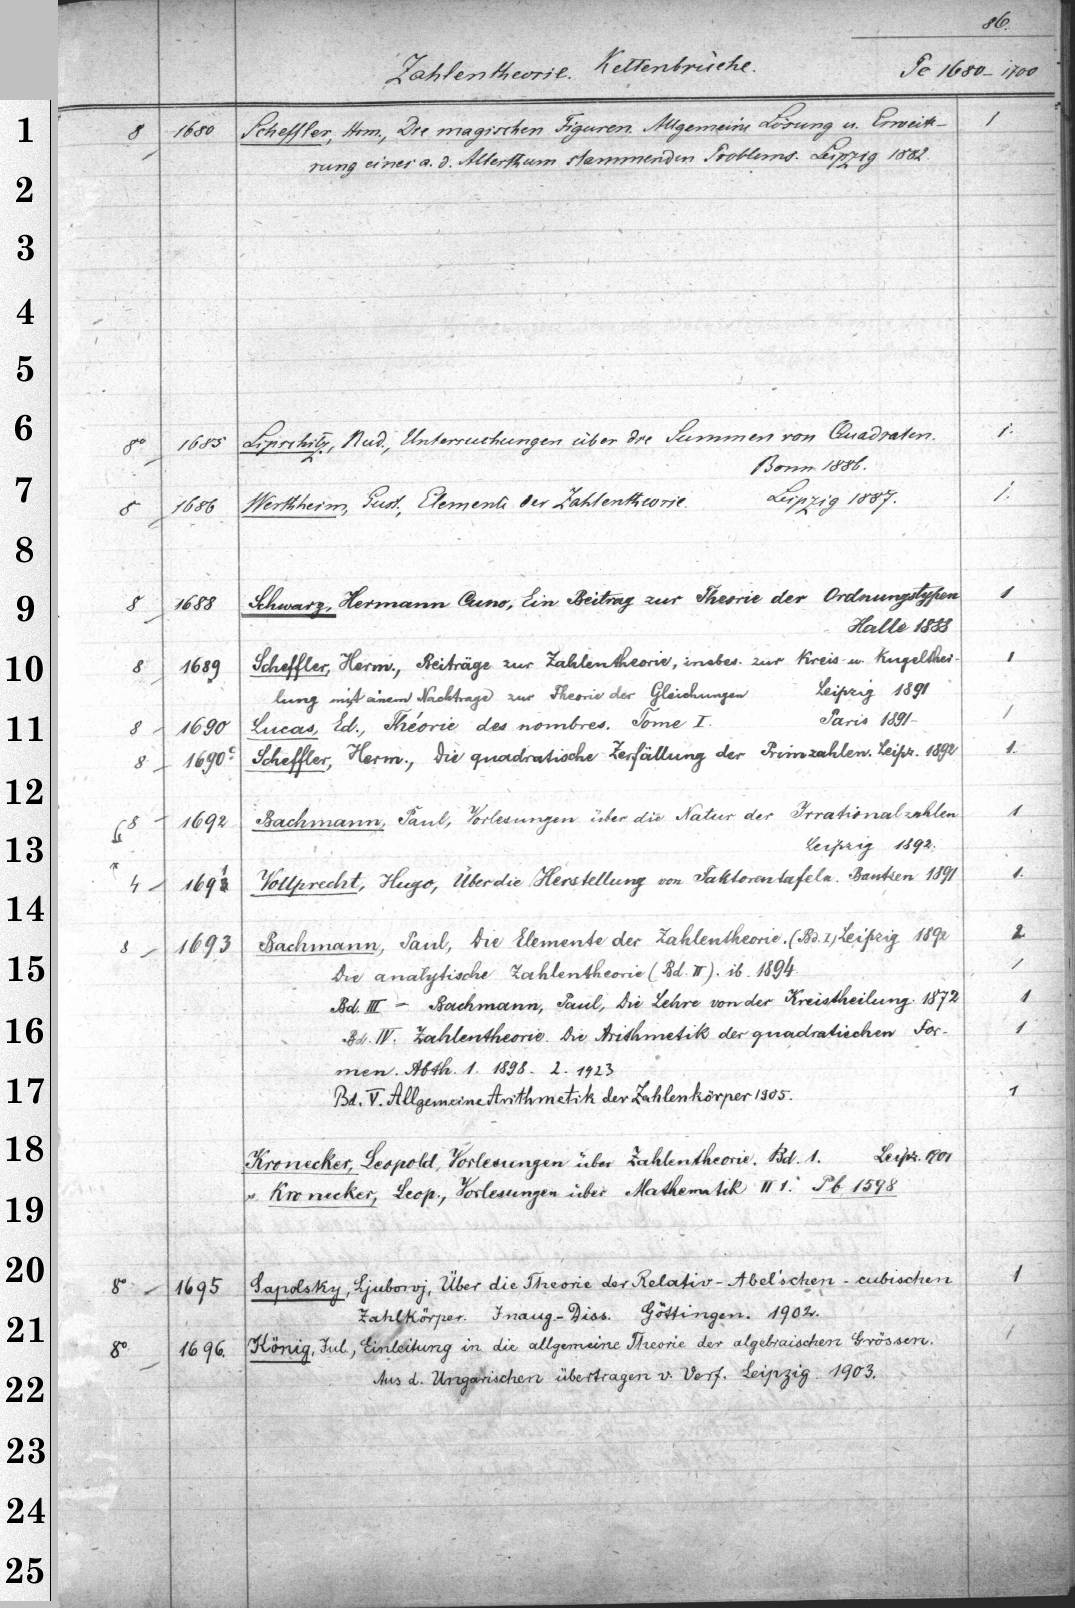 86.
Zahlentheorie. Kettenbrüche. Pc 1680-1700
1 8 1680 Scheffler, Hrm., Die magischen Figuren. Allgemeine Lösung u. Erweite- 1
rung eines a. d. Alterthum stammenden Problems. Leipzig 1882.
2
3
4
5
6 8° 1685 Lipschitz, Rud., Untersuchungen über die Summen von Quadraten. 1.
Bonn 1886.
7 8 1686 Wertheim, Gust., Elemente der Zahlentheorie. Leipzig 1887. 1.
8
9 8 1688 Schwarz, Hermann Cuno, Ein Beitrag zur Theorie der Ordnungstypen 1
Halle 1888
10 8 1689 Scheffler, Herm., Beiträge zur Zahlentheorie, insbes. zur Kreis- u. Kugelthei- 1
lung mit einem Nachtrage zur Theorie der Gleichungen Leipzig 1891
11 8 1690 Lucas, Ed., Théorie des nombres. Tome I. Paris 1891- 1
8 1690c Scheffler, Herm., Die quadratische Zerfällung der Primzahlen. Leipz. 1892 1.
12 8 1692 Bachmann, Paul, Vorlesungen über die Natur der Irrationalzahlen 1
13 Leipzig 1892.
4 169 Vollprecht, Hugo, Über die Herstellung von Faktorentafeln. Bautzen 1891 1.
14 8 1693 Bachmann, Paul, Die Elemente der Zahlentheorie. (Bd. I) Leipzig 1892 2
15 Die analytische Zahlentheorie (Bd. II). ib. 1894 1
Bd. III - Bachmann, Paul, Die Lehre von der Kreistheilung. 1872 1
16 Bd. IV. Zahlentheorie. Die Arithmetik der quadratischen For- 1
men. Abth. 1. 1898. 2. 1923
17 Bd. V. Allgemeine Arithmetik der Zahlenkörper 1905. 1
18 Kronecker, Leopold, Vorlesungen über Zahlentheorie. Bd. 1. Leipz. 1901
19 " Kronecker, Leop., Vorlesungen über Mathematik II 1. Pb 1598
20 8° 1695 Sapolsky, Ljubowj, Über die Theorie der Relativ-Abel'schen-cubischen 1
21 Zahlkörper. Inaug.-Diss. Göttingen. 1902.
8° 1696. König, Jul., Einleitung in die allgemeine Theorie der algebraischen Grössen. 1
22 Aus d. Ungarischen übertragen v. Verf. Leipzig 1903.
23
24
25